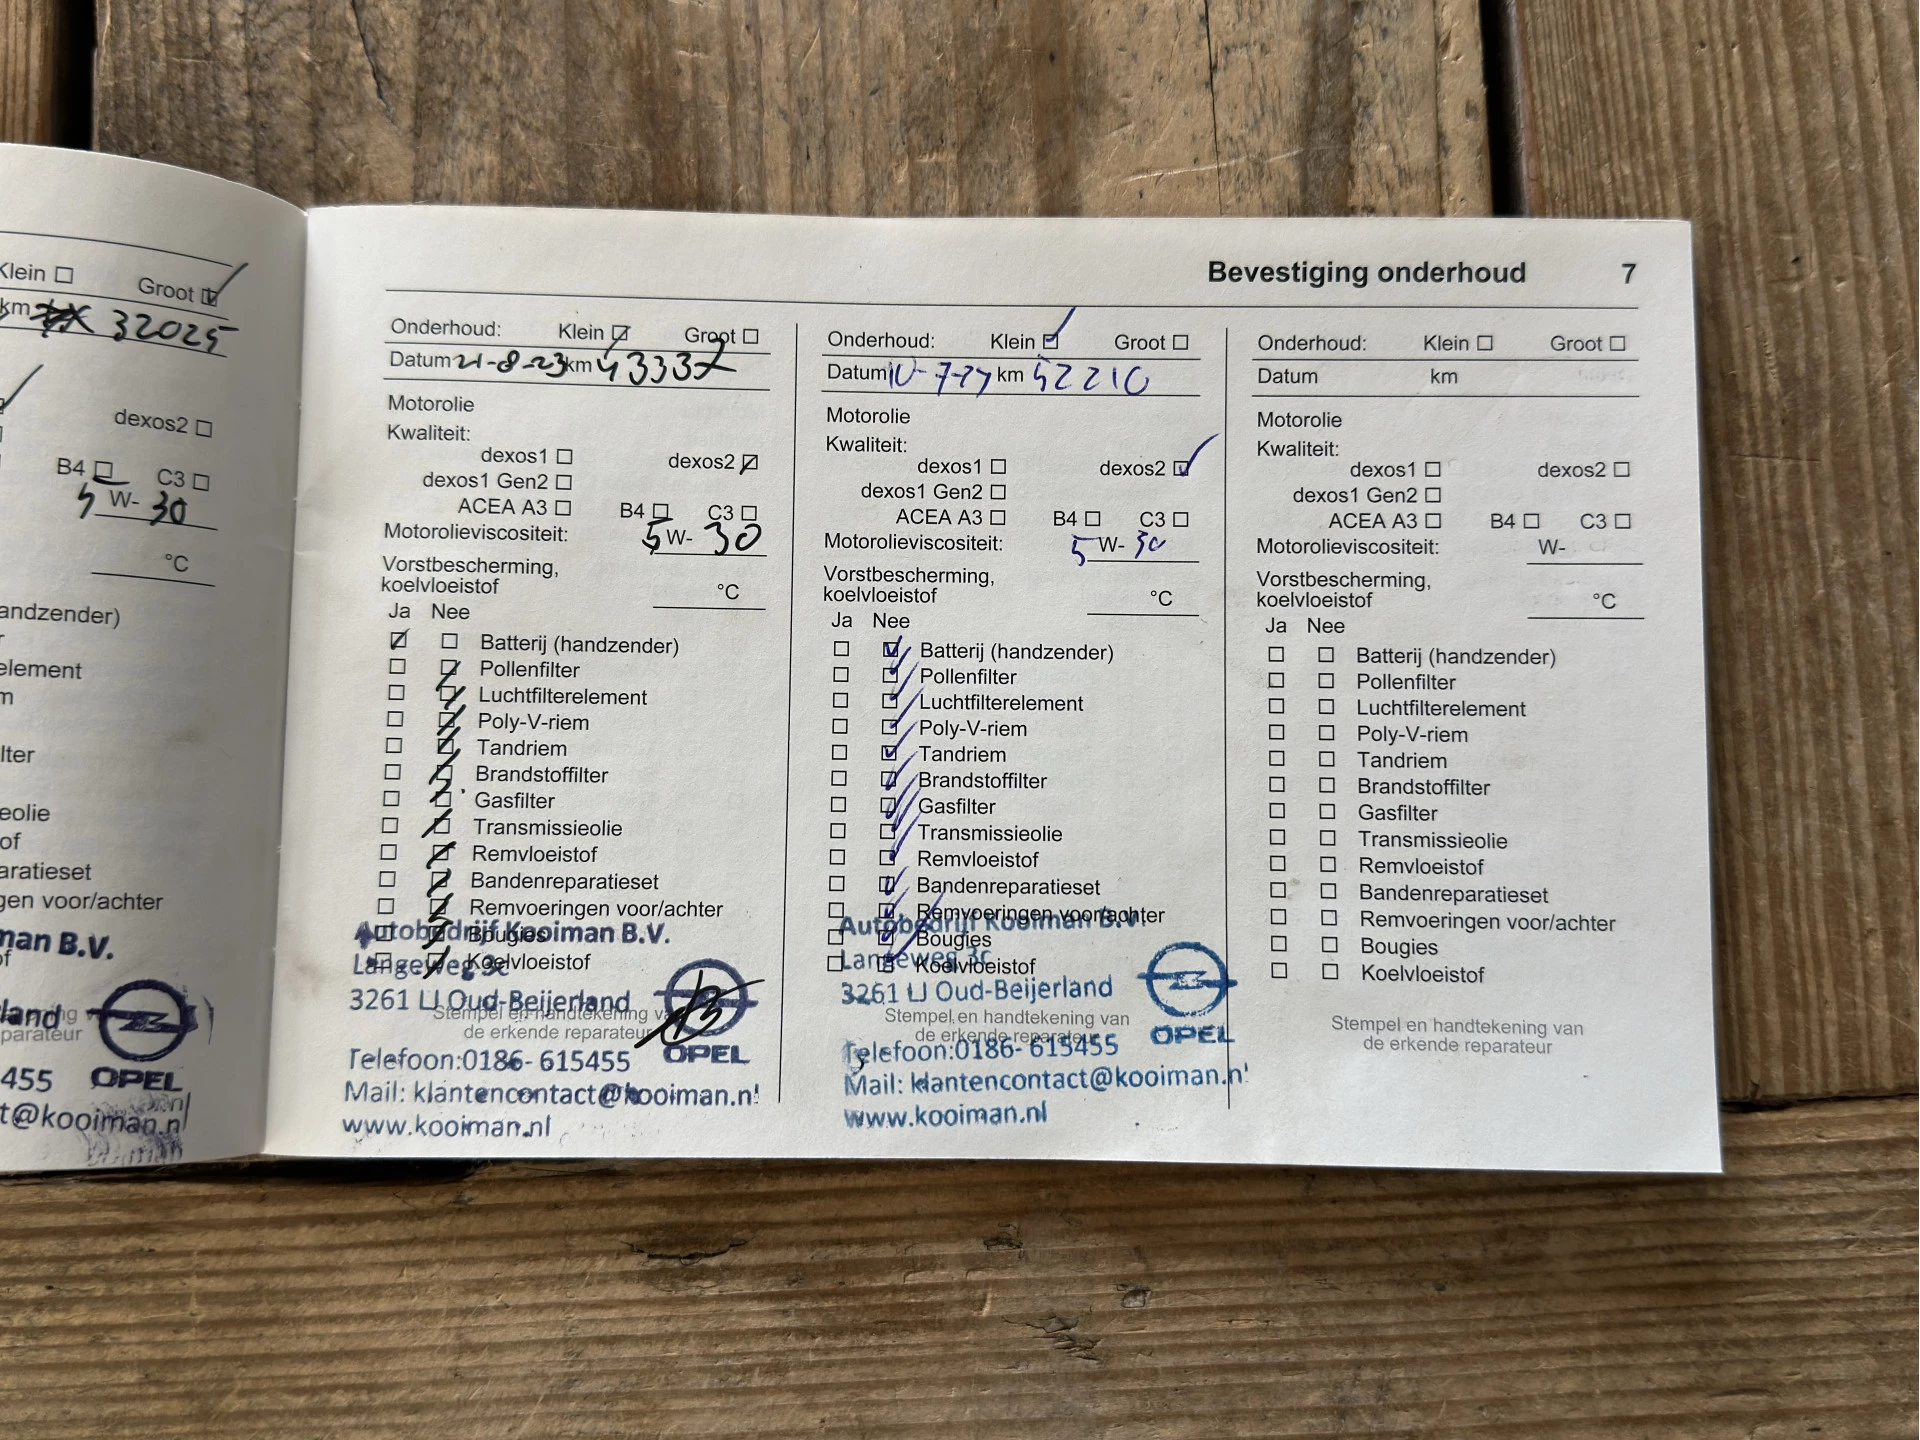 Klein
Groot
km 32025
dexos2
B4 C3
5 W- 30
°C
andzender)
element
lter
eolie
of
aratieset
gen voor/achter
man B.V.
land
parateur
455 OPEL
t@kooiman.nl
Bevestiging onderhoud 7
Onderhoud: Klein Groot
Datum 21-8-23 km 43337
Motorolie
Kwaliteit:
dexos1 dexos2
dexos1 Gen2
ACEA A3 B4 C3
Motorolieviscositeit: 5 W- 30
Vorstbescherming,
koelvloeistof °C
Ja Nee
Batterij (handzender)
Pollenfilter
Luchtfilterelement
Poly-V-riem
Tandriem
Brandstoffilter
Gasfilter
Transmissieolie
Remvloeistof
Bandenreparatieset
Remvoeringen voor/achter
Bougies
Koelvloeistof
Stempel en handtekening va
de erkende reparateur
Autobedrijf Kooiman B.V.
Langeweg 3c
3261 LJ Oud-Beijerland
Telefoon:0186- 615455
Mail: klantencontact@kooiman.nl
www.kooiman.nl
OPEL
Onderhoud: Klein Groot
Datum 10-7-24 km 52210
Motorolie
Kwaliteit:
dexos1 dexos2
dexos1 Gen2
ACEA A3 B4 C3
Motorolieviscositeit: 5 W- 30
Vorstbescherming,
koelvloeistof °C
Ja Nee
Batterij (handzender)
Pollenfilter
Luchtfilterelement
Poly-V-riem
Tandriem
Brandstoffilter
Gasfilter
Transmissieolie
Remvloeistof
Bandenreparatieset
Remvoeringen voor/achter
Bougies
Koelvloeistof
Stempel en handtekening van
de erkende reparateur
Autobedrijf Kooiman B.V.
Langeweg 3c
3261 LJ Oud-Beijerland
Telefoon:0186- 615455
Mail: klantencontact@kooiman.nl
www.kooiman.nl
OPEL
Onderhoud: Klein Groot
Datum km
Motorolie
Kwaliteit:
dexos1 dexos2
dexos1 Gen2
ACEA A3 B4 C3
Motorolieviscositeit: W-
Vorstbescherming,
koelvloeistof °C
Ja Nee
Batterij (handzender)
Pollenfilter
Luchtfilterelement
Poly-V-riem
Tandriem
Brandstoffilter
Gasfilter
Transmissieolie
Remvloeistof
Bandenreparatieset
Remvoeringen voor/achter
Bougies
Koelvloeistof
Stempel en handtekening van
de erkende reparateur